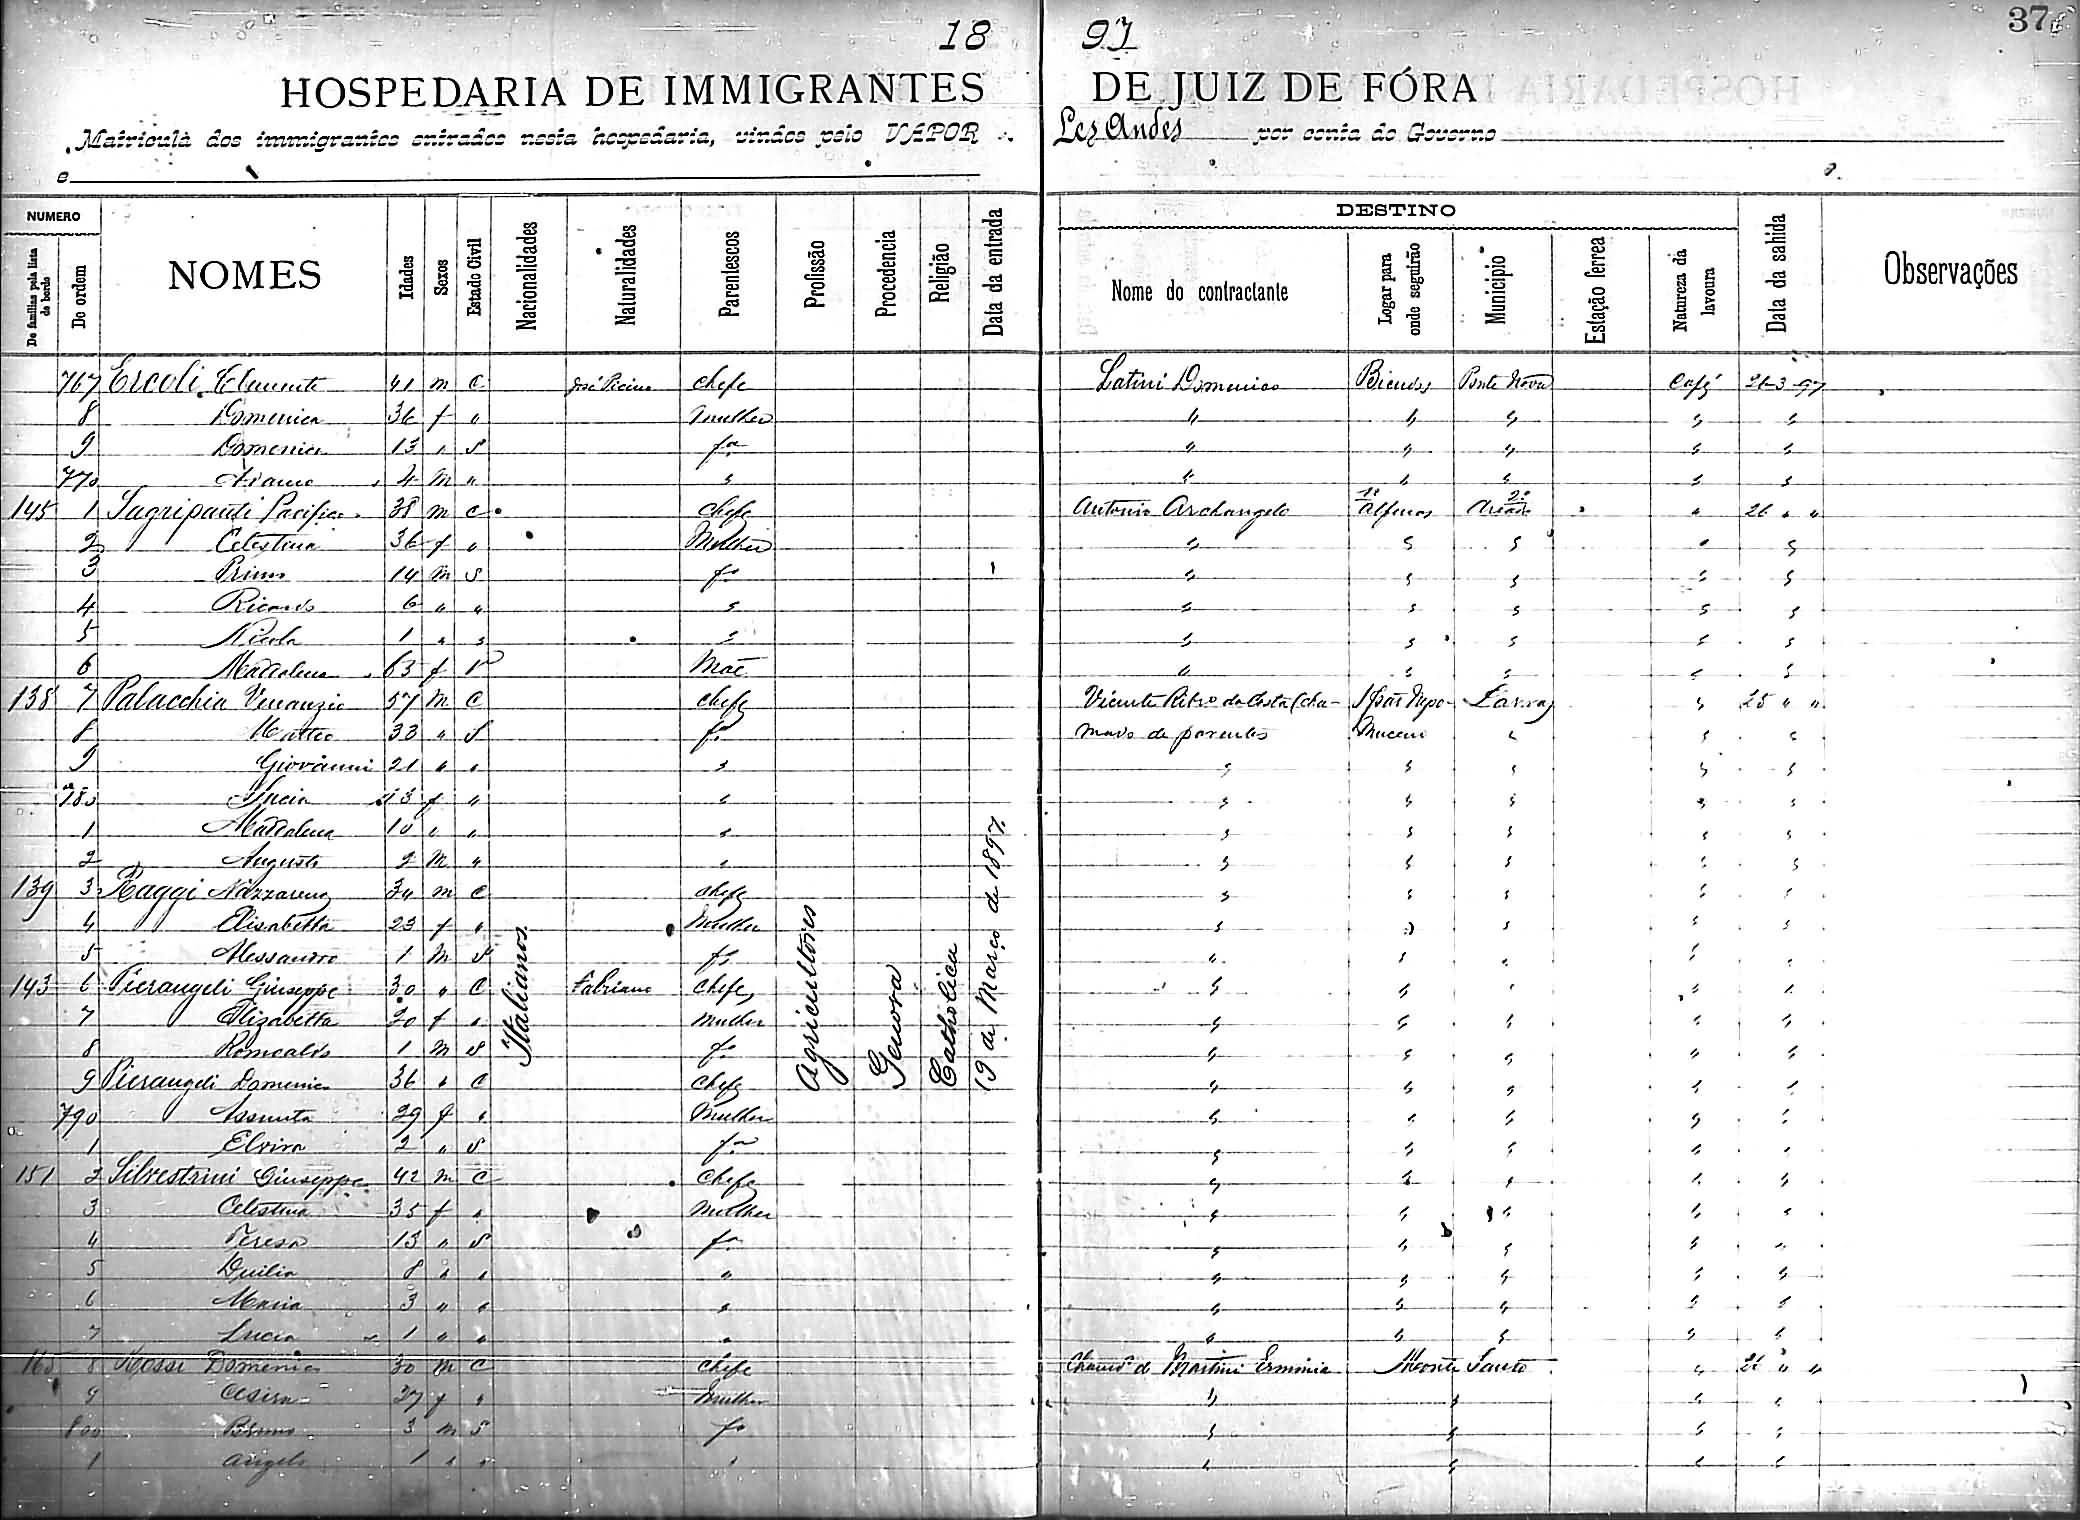 37
18 97
HOSPEDARIA DE IMMIGRANTES DE JUIZ DE FÓRA
Matricula dos immigrantes entrados nesta hospedaria, vindos pelo VAPOR Les Andes por conta do Governo
e
NUMERO DESTINO
De familias pela lista de bordo De ordem NOMES Idades Sexos Estado Civil Nacionalidades Naturalidades Parentescos Profissão Procedencia Religião Data da entrada Nome do contractante Logar para onde seguirão Municipio Estação ferrea Natureza da lavoura Data da sahida Observações
767 Ercoli Clemente 41 m C chefe Latini Domenico Ponte Nova Café 26-3-97
8 Domenica 36 f " mulher " " " " "
9 Domenica 13 " S fa " " " " "
770 4 m " " " " " " "
145 1 Sagripanti Pacifico 38 m C chefe Antonio Archangelo 1º Alfenas 2º Areado " 26 " "
2 Celestina 36 f " Mulher " " " " "
3 Primo 14 m S fo " " " " "
4 Ricardo 6 " " " " " " " "
5 Nicola 1 " " " " " " " "
6 Maddalena 63 f V Mãe " " " " "
138 7 Palacchia Venanzio 57 m C chefe Vicente Ribro da Costa (cha- S. João Nepo- " 25 " "
8 Matteo 33 " S fo mado de parentes Muceno " " "
9 Giovanni 21 " " " " " " " "
780 Lucia 13 f " " " " " " "
1 Maddalena 10 " " " " " " " "
2 Augusto 2 m " " " " " " "
139 3 Raggi Nazzareno 34 m C chefe " " " " "
4 Elisabetta 23 f " Mulher " " " " "
5 Alessandro 1 m S fo " " " " "
143 6 Pierangeli Giuseppe 30 " C Fabriano chefe " " " " "
7 Elizabetta 20 f " mulher " " " " "
8 Romoaldo 1 m S fo " " " " "
9 Pierangeli Domenico 36 " C chefe " " " " "
790 Assunta 29 f " Mulher " " " " "
1 Elvira 2 " S fa " " " " "
151 2 Silvestrini Giuseppe 42 m C chefe " " " " "
3 Celestina 35 f " mulher " " " " "
4 Teresa 13 " S fa " " " " "
5 Duilia 8 " " " " " " " "
6 Maria 3 " " " " " " " "
7 Lucia 1 " " " " " " " "
165 8 Rossi Domenico 30 m C chefe Chamdo de Martini Erminia Monte Santo " 26 " "
9 Cesira 27 f " mulher " " " "
800 Bruno 3 m S fo " " " "
1 Angelo 1 " " " " " " "
Italianos
Agricultores
Genova
Catholica
19 de Março de 1897